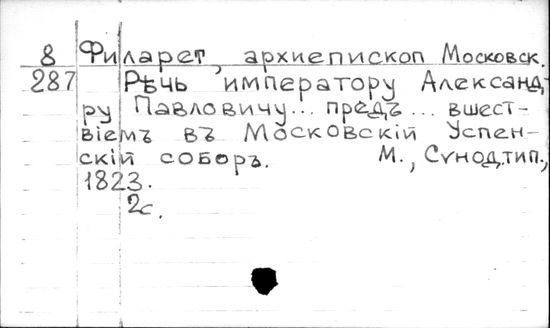 8 Филарет, архиепископ Московск.
287 Рѣчь императору Александ
ру Павловичу... предъ... вшест-
віемъ въ Московскій Успен-
скій соборъ. М., Сѵнод.тип.,
1823.
2с.